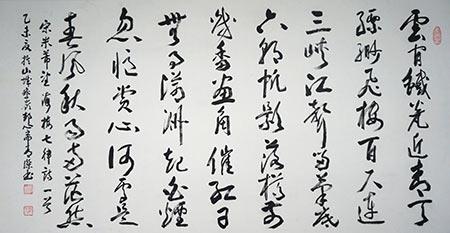 雲間鐵瓮近青天
縹緲飛樓百尺連
三峽江聲流筆底
六朝帆影落樽前
幾番畫角催紅日
無事滄洲起白煙
忽憶賞心何處是
春風秋月兩茫然
宋米芾望海樓七律詩一首
乙未夏於山城